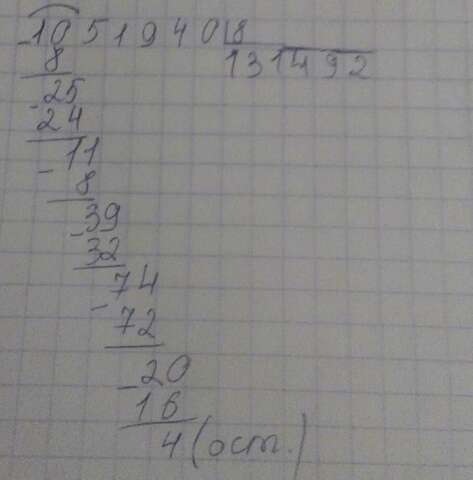 -1051940 8
8 131492
-25
24
-11
8
-39
32
-74
72
-20
16
4 (ост.)